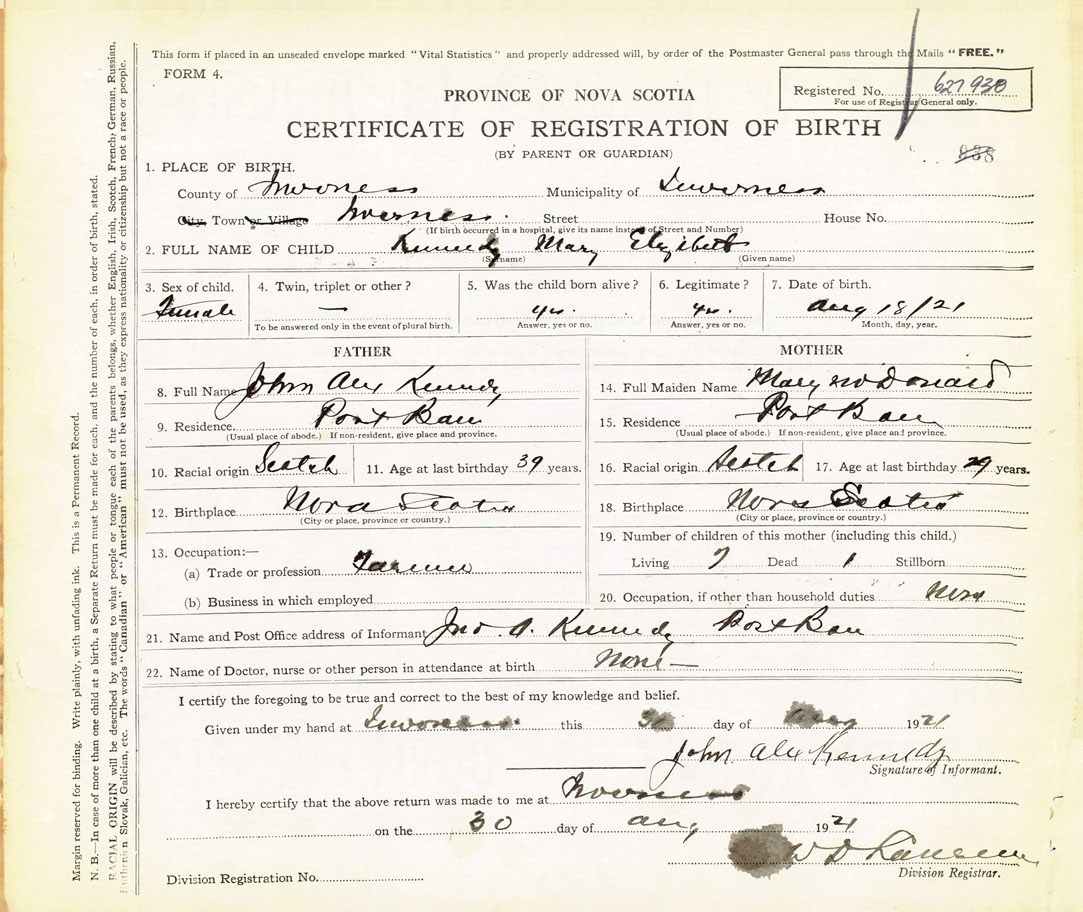 This form if placed in an unsealed envelope marked "Vital Statistics" and properly addressed will, by order of the Postmaster General pass through the Mails "FREE."
FORM 4.
Registered No. 627930
For use of Registrar General only.
PROVINCE OF NOVA SCOTIA
CERTIFICATE OF REGISTRATION OF BIRTH
(BY PARENT OR GUARDIAN)
1. PLACE OF BIRTH.
County of Inverness Municipality of Inverness
City, Town or Village Inverness. Street House No.
(If birth occurred in a hospital, give its name instead of Street and Number)
2. FULL NAME OF CHILD Kennedy Mary Elizibeth
(Surname) (Given name)
3. Sex of child. 4. Twin, triplet or other? 5. Was the child born alive? 6. Legitimate? 7. Date of birth.
Female — yes. yes. Aug 18/21
To be answered only in the event of plural birth. Answer, yes or no. Answer, yes or no. Month, day, year.
FATHER
8. Full Name John Alex Kennedy
9. Residence Port Ban
(Usual place of abode.) If non-resident, give place and province.
10. Racial origin Scotch 11. Age at last birthday 39 years.
12. Birthplace Nova Scotia
(City or place, province or country.)
13. Occupation:—
(a) Trade or profession Farmer
(b) Business in which employed
MOTHER
14. Full Maiden Name Mary McDonald
15. Residence Port Ban
(Usual place of abode.) If non-resident, give place and province.
16. Racial origin Scotch 17. Age at last birthday 29 years.
18. Birthplace Nova Scotia
(City or place, province or country.)
19. Number of children of this mother (including this child.)
Living 7 Dead 1 Stillborn
20. Occupation, if other than household duties None
21. Name and Post Office address of Informant Jno. A. Kennedy Port Ban
22. Name of Doctor, nurse or other person in attendance at birth None —
I certify the foregoing to be true and correct to the best of my knowledge and belief.
Given under my hand at Inverness this 30 day of Aug 1921
John Alex Kennedy
Signature of Informant.
I hereby certify that the above return was made to me at Inverness
on the 30 day of Aug 1921
W D
Division Registrar.
Division Registration No.
Margin reserved for binding. Write plainly, with unfading ink. This is a Permanent Record.
N. B.—In case of more than one child at a birth, a Separate Return must be made for each, and the number of each, in order of birth, stated.
RACIAL ORIGIN will be described by stating to what people or tongue each of the parents belongs, whether English, Irish, Scotch, French, German, Russian,
Ruthenian, Slovak, Galician, etc. The words "Canadian" or "American" must not be used, as they express nationality or citizenship but not a race or people.